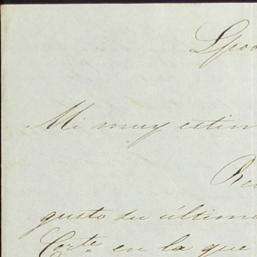 Mi muy estim
gusto su último
Corte en la que